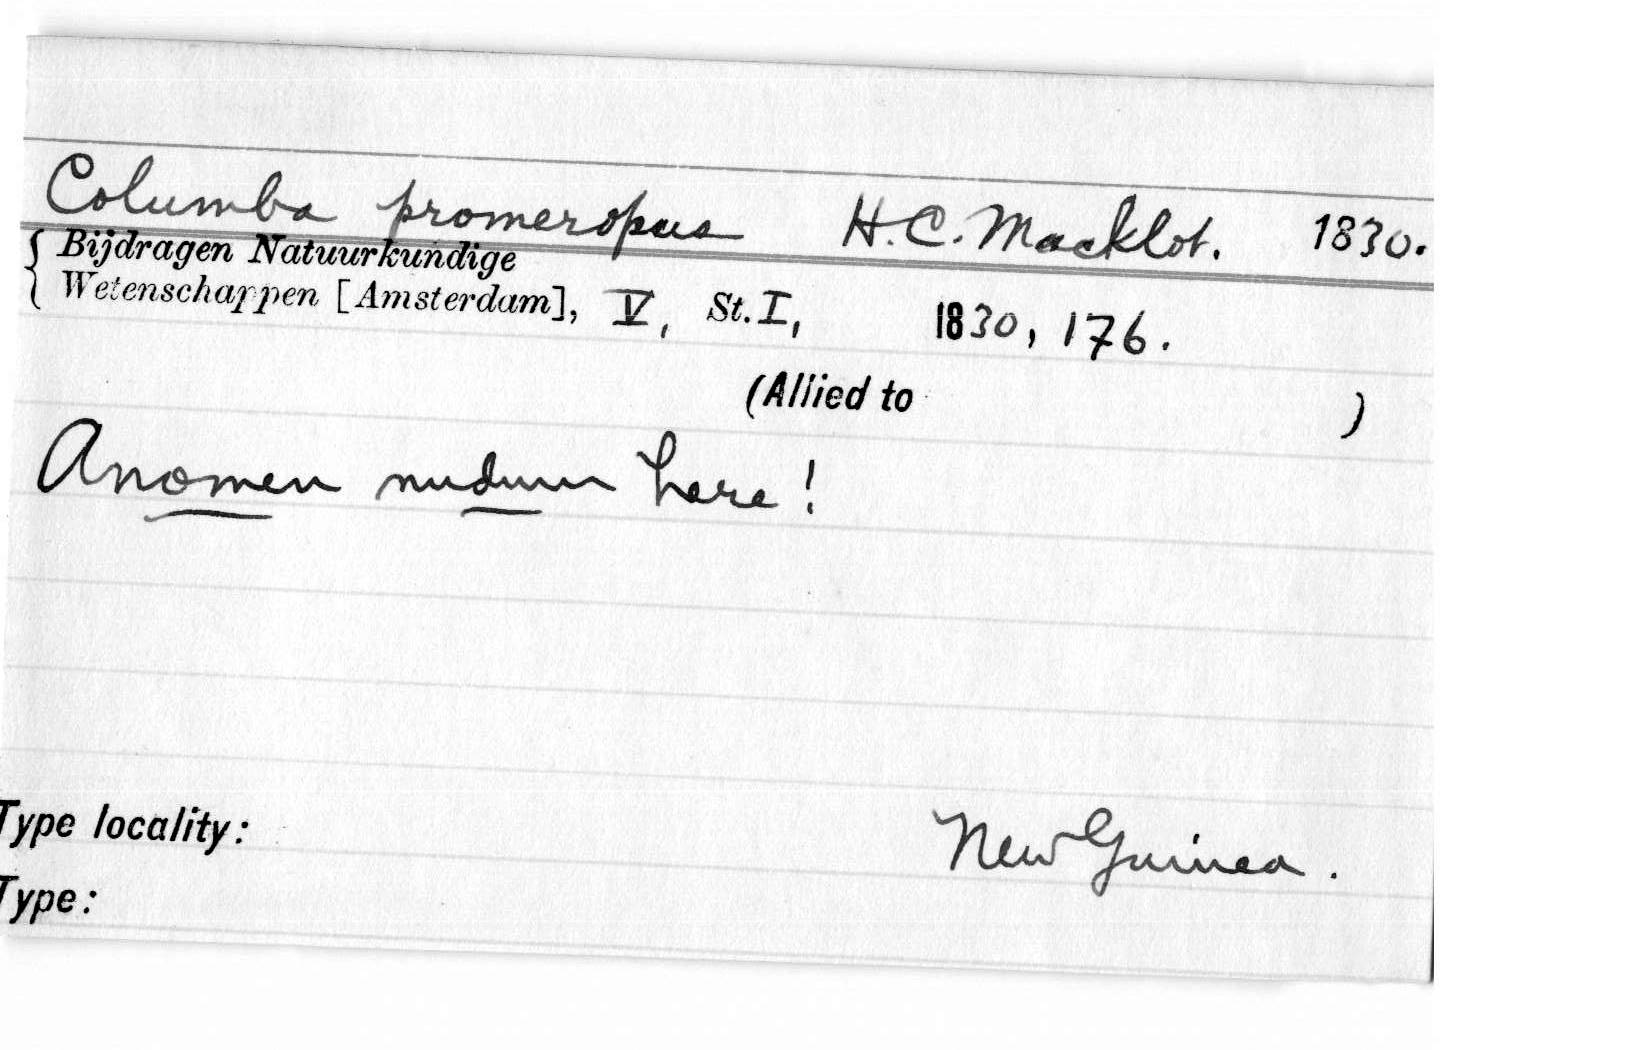 Columba promeropus H. C. Macklot. 1830.
Bijdragen Natuurkundige
Wetenschappen [Amsterdam], V, St. I, 1830, 176.
(Allied to )
A nomen nudum here!
Type locality: New Guinea.
Type: